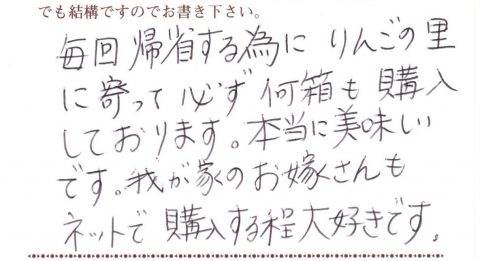 でも結構ですのでお書き下さい。
毎回帰省する為に りんごの里
に寄って必ず何箱も購入
しております。本当に美味しい
です。我が家のお嫁さんも
ネットで購入する程大好きです。